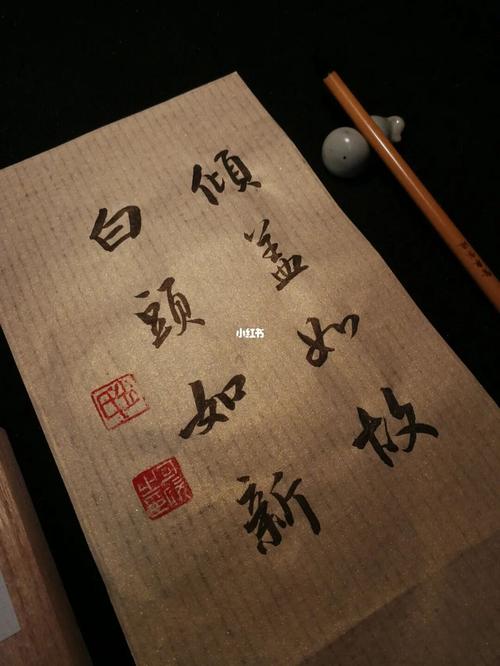 傾盖如故
白頭如新
小红书